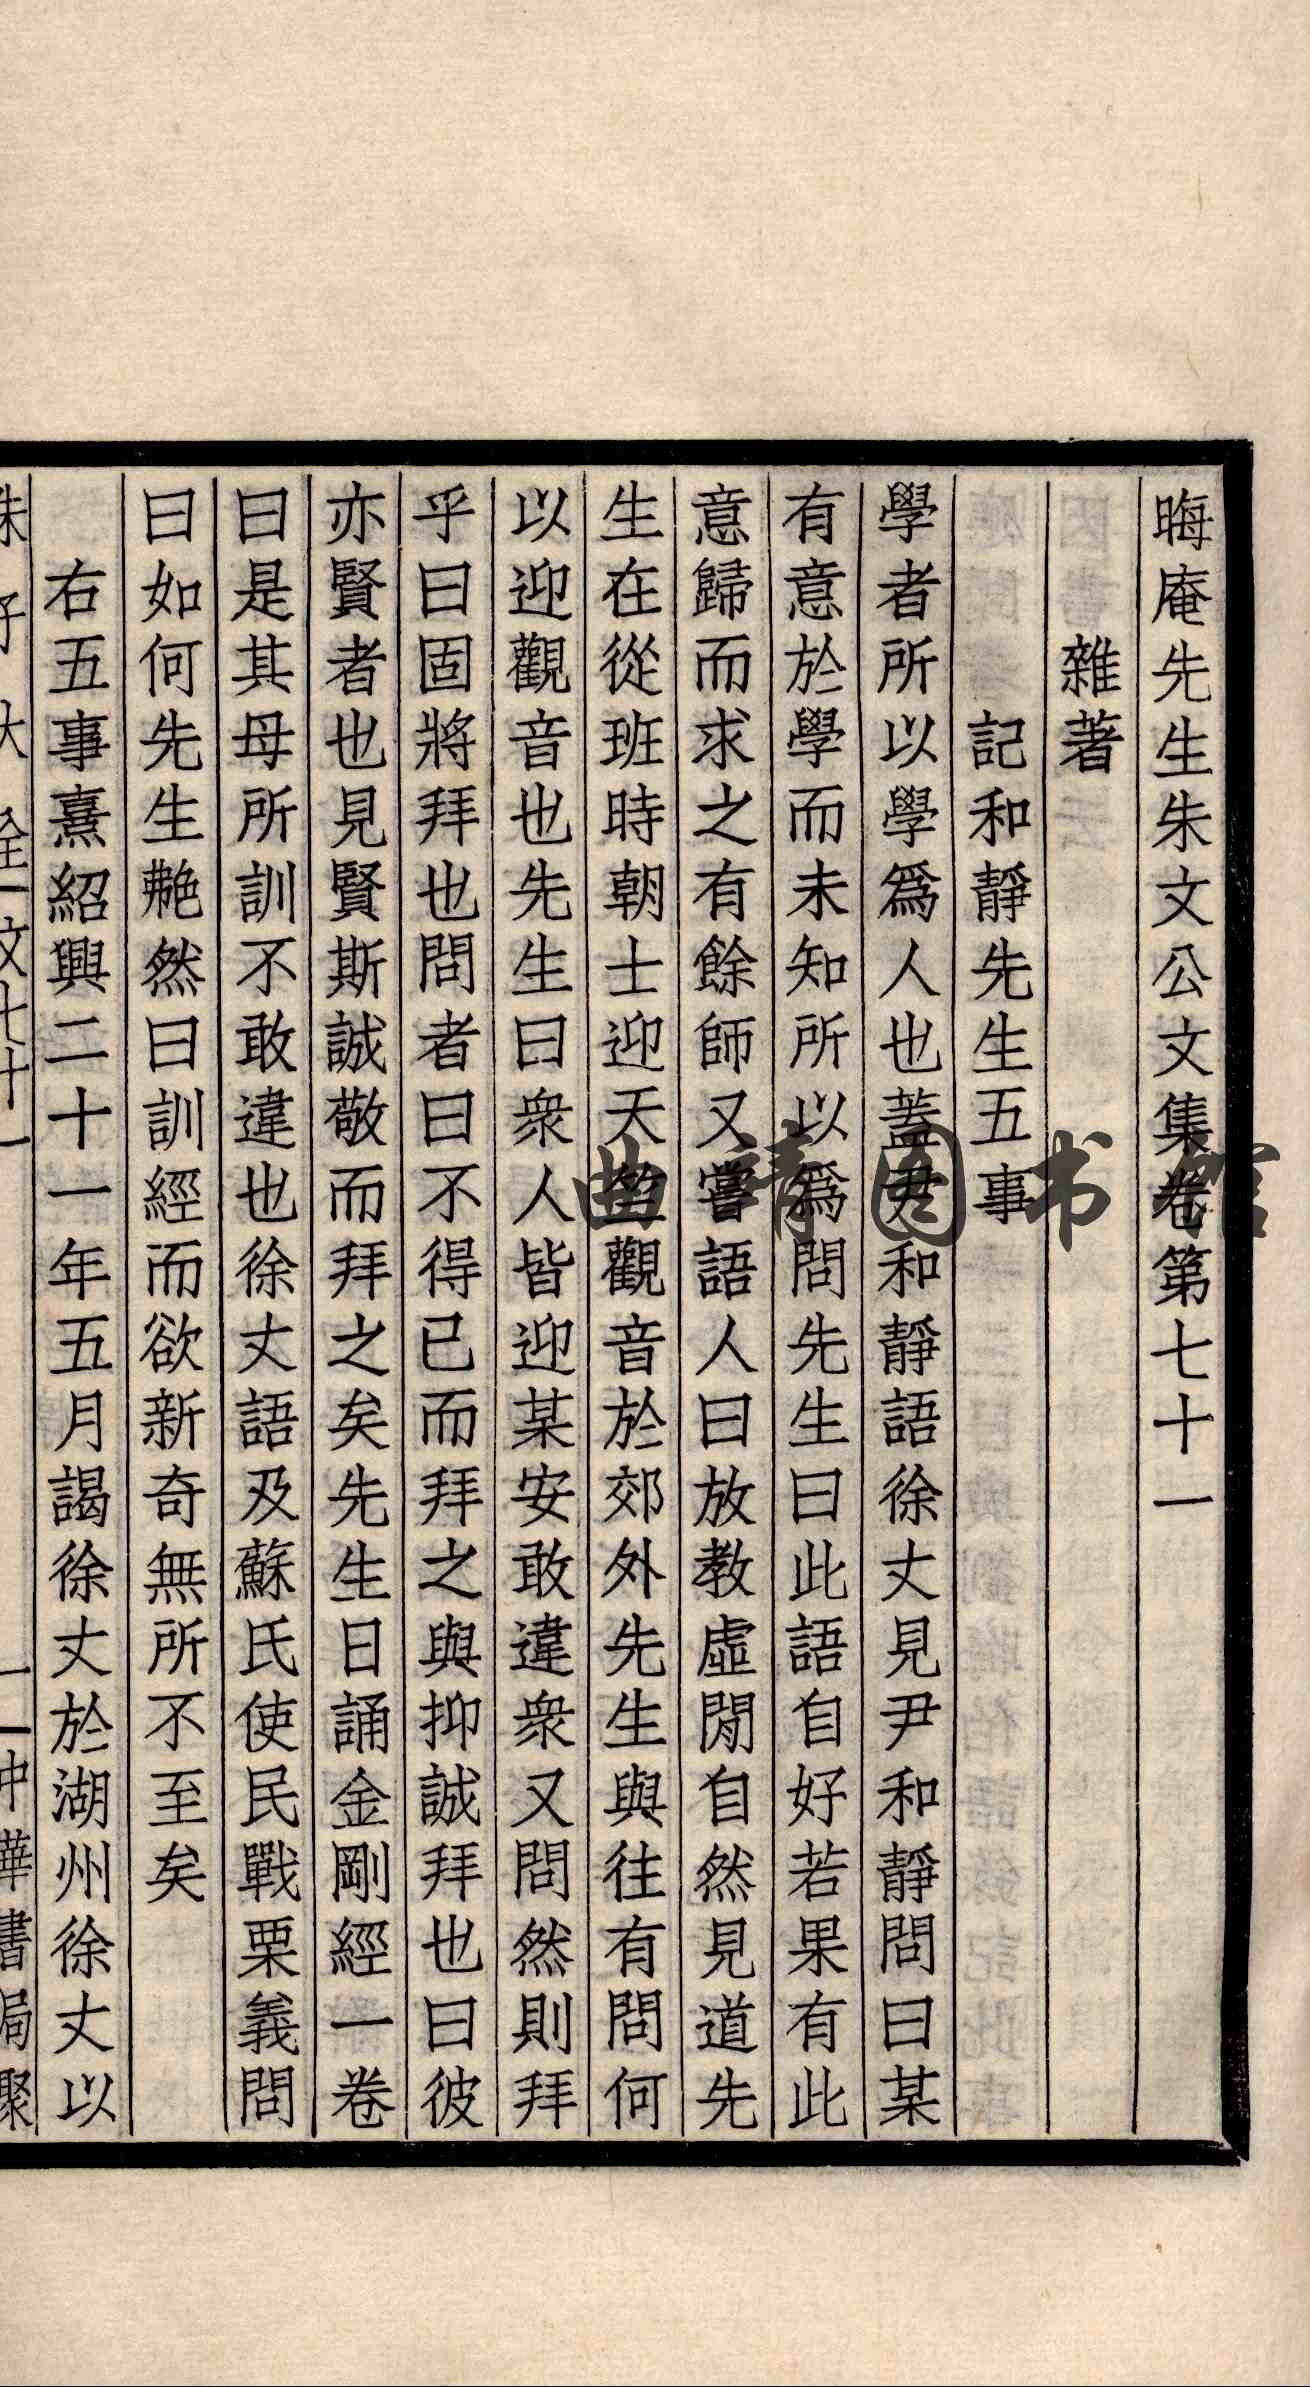 晦庵先生朱文公文集卷第七十一
雜著
記和靜先生五事
學者所以學爲人也蓋尹和靜語徐丈見尹和靜問曰某
有意於學而未知所以爲問先生曰此語自好若果有此
意歸而求之有餘師又嘗語人曰放教虛閒自然見道先
生在從班時朝士迎天竺觀音於郊外先生與往有問何
以迎觀音也先生曰衆人皆迎某安敢違衆又問然則拜
乎曰固將拜也問者曰不得已而拜之與抑誠拜也曰彼
亦賢者也見賢斯誠敬而拜之矣先生日誦金剛經一卷
曰是其母所訓不敢違也徐丈語及蘇氏使民戰栗義問
曰如何先生艴然曰訓經而欲新奇無所不至矣
右五事熹紹興二十一年五月謁徐丈於湖州徐丈以
朱子大全 文七十一
一 中華書局聚
曲靖图书馆